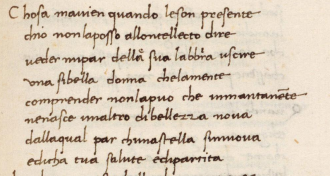 Chosa mavien quando leson presente
chio nonlaposso allontellecto dire
veder mipar della sua labbra uscire
una sibella donna chelamente
comprender nonlapuo che inmantanente
nenasce unaltro dibelleza nova
dallaqual par chunastella simuova
edicha tua salute edipartita